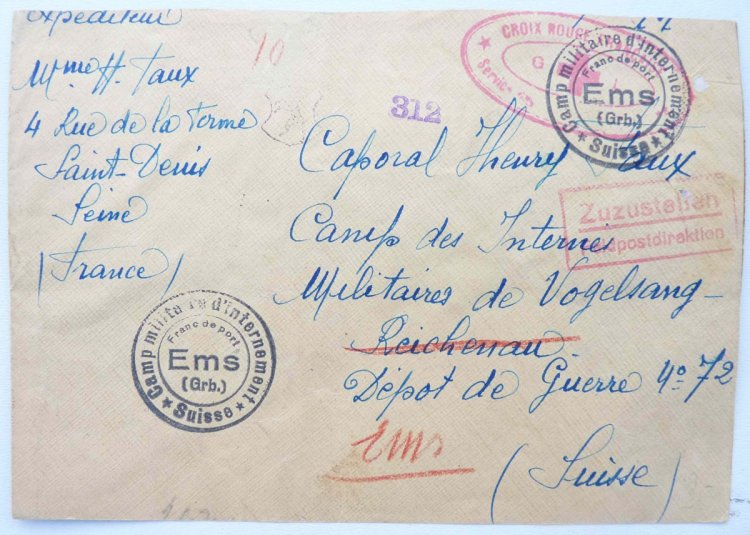 Expéditeur
Mme H. Taux
4 Rue de la Ferme
Saint-Denis
Seine
(France)
10
312
CROIX ROUGE
G
Service
Camp militaire d'internement
Franc de port
Ems
(Grb.)
Suisse
Caporal Henry Taux
Camp des Internés
Militaires de Vogelsang-
Reichenau.
Dépôt de Guerre No 72
Ems
(Suisse)
Zuzustellen
postdirektion
Camp militaire d'internement
Franc de port
Ems
(Grb.)
Suisse